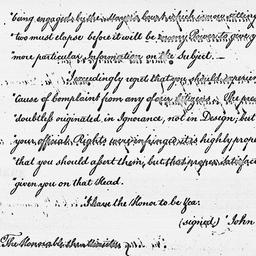 being engaged by the Mayor's Court which is now sitting
two must elapse before it will be in my Power to give
more particular Information on the Subject. —
I exceedingly regret that you should experience
Cause of Complaint from any of our Citizens. The
doubtless originated in Ignorance, not in Design; but
your official Rights were infringed it is highly proper
that you should assert them, but that proper satisfac
given you on that Head.
I have the Honor to be &ca.
(signed) John
The Honorable the Minister